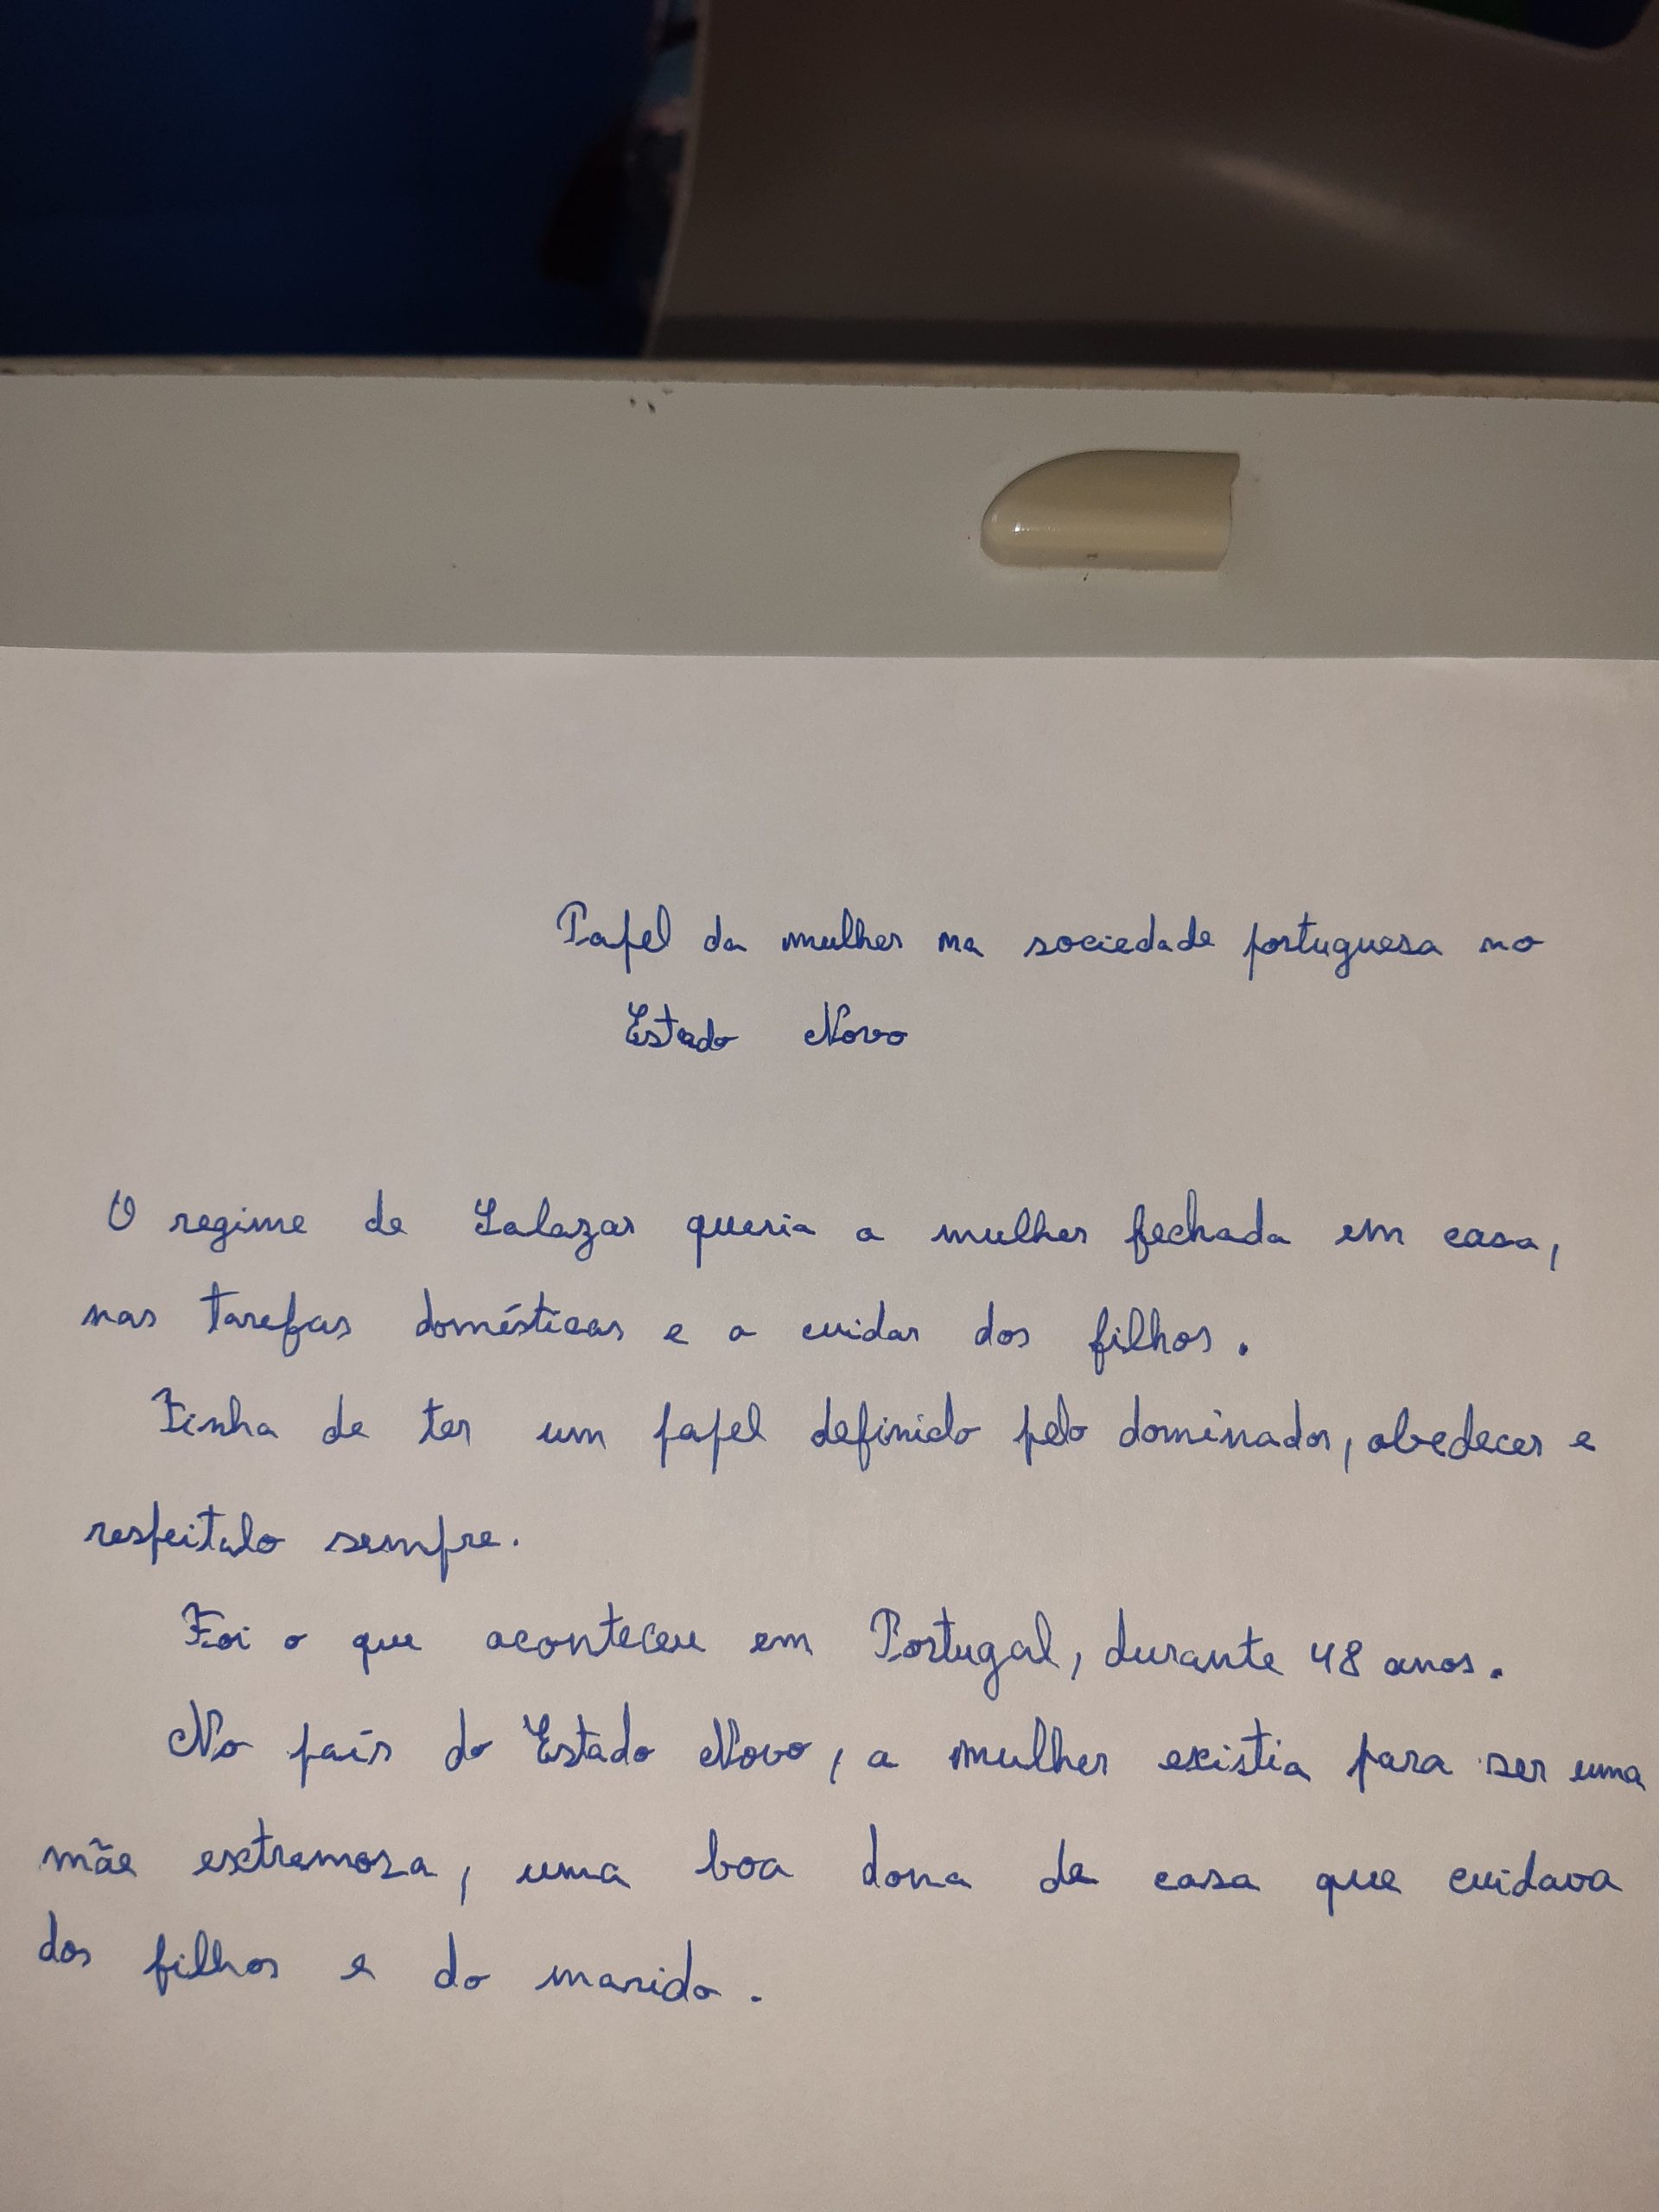 Papel da mulher na sociedade portuguesa no
Estado Novo
O regime de Salazar queria a mulher fechada em casa,
nas tarefas domésticas e a cuidar dos filhos.
Tinha de ter um papel definido pelo dominador, obedecer e
respeitalo sempre.
Foi o que aconteceu em Portugal, durante 48 anos.
No país do Estado Novo, a mulher existia para ser uma
mãe extremosa, uma boa dona de casa que cuidava
dos filhos e do marido.